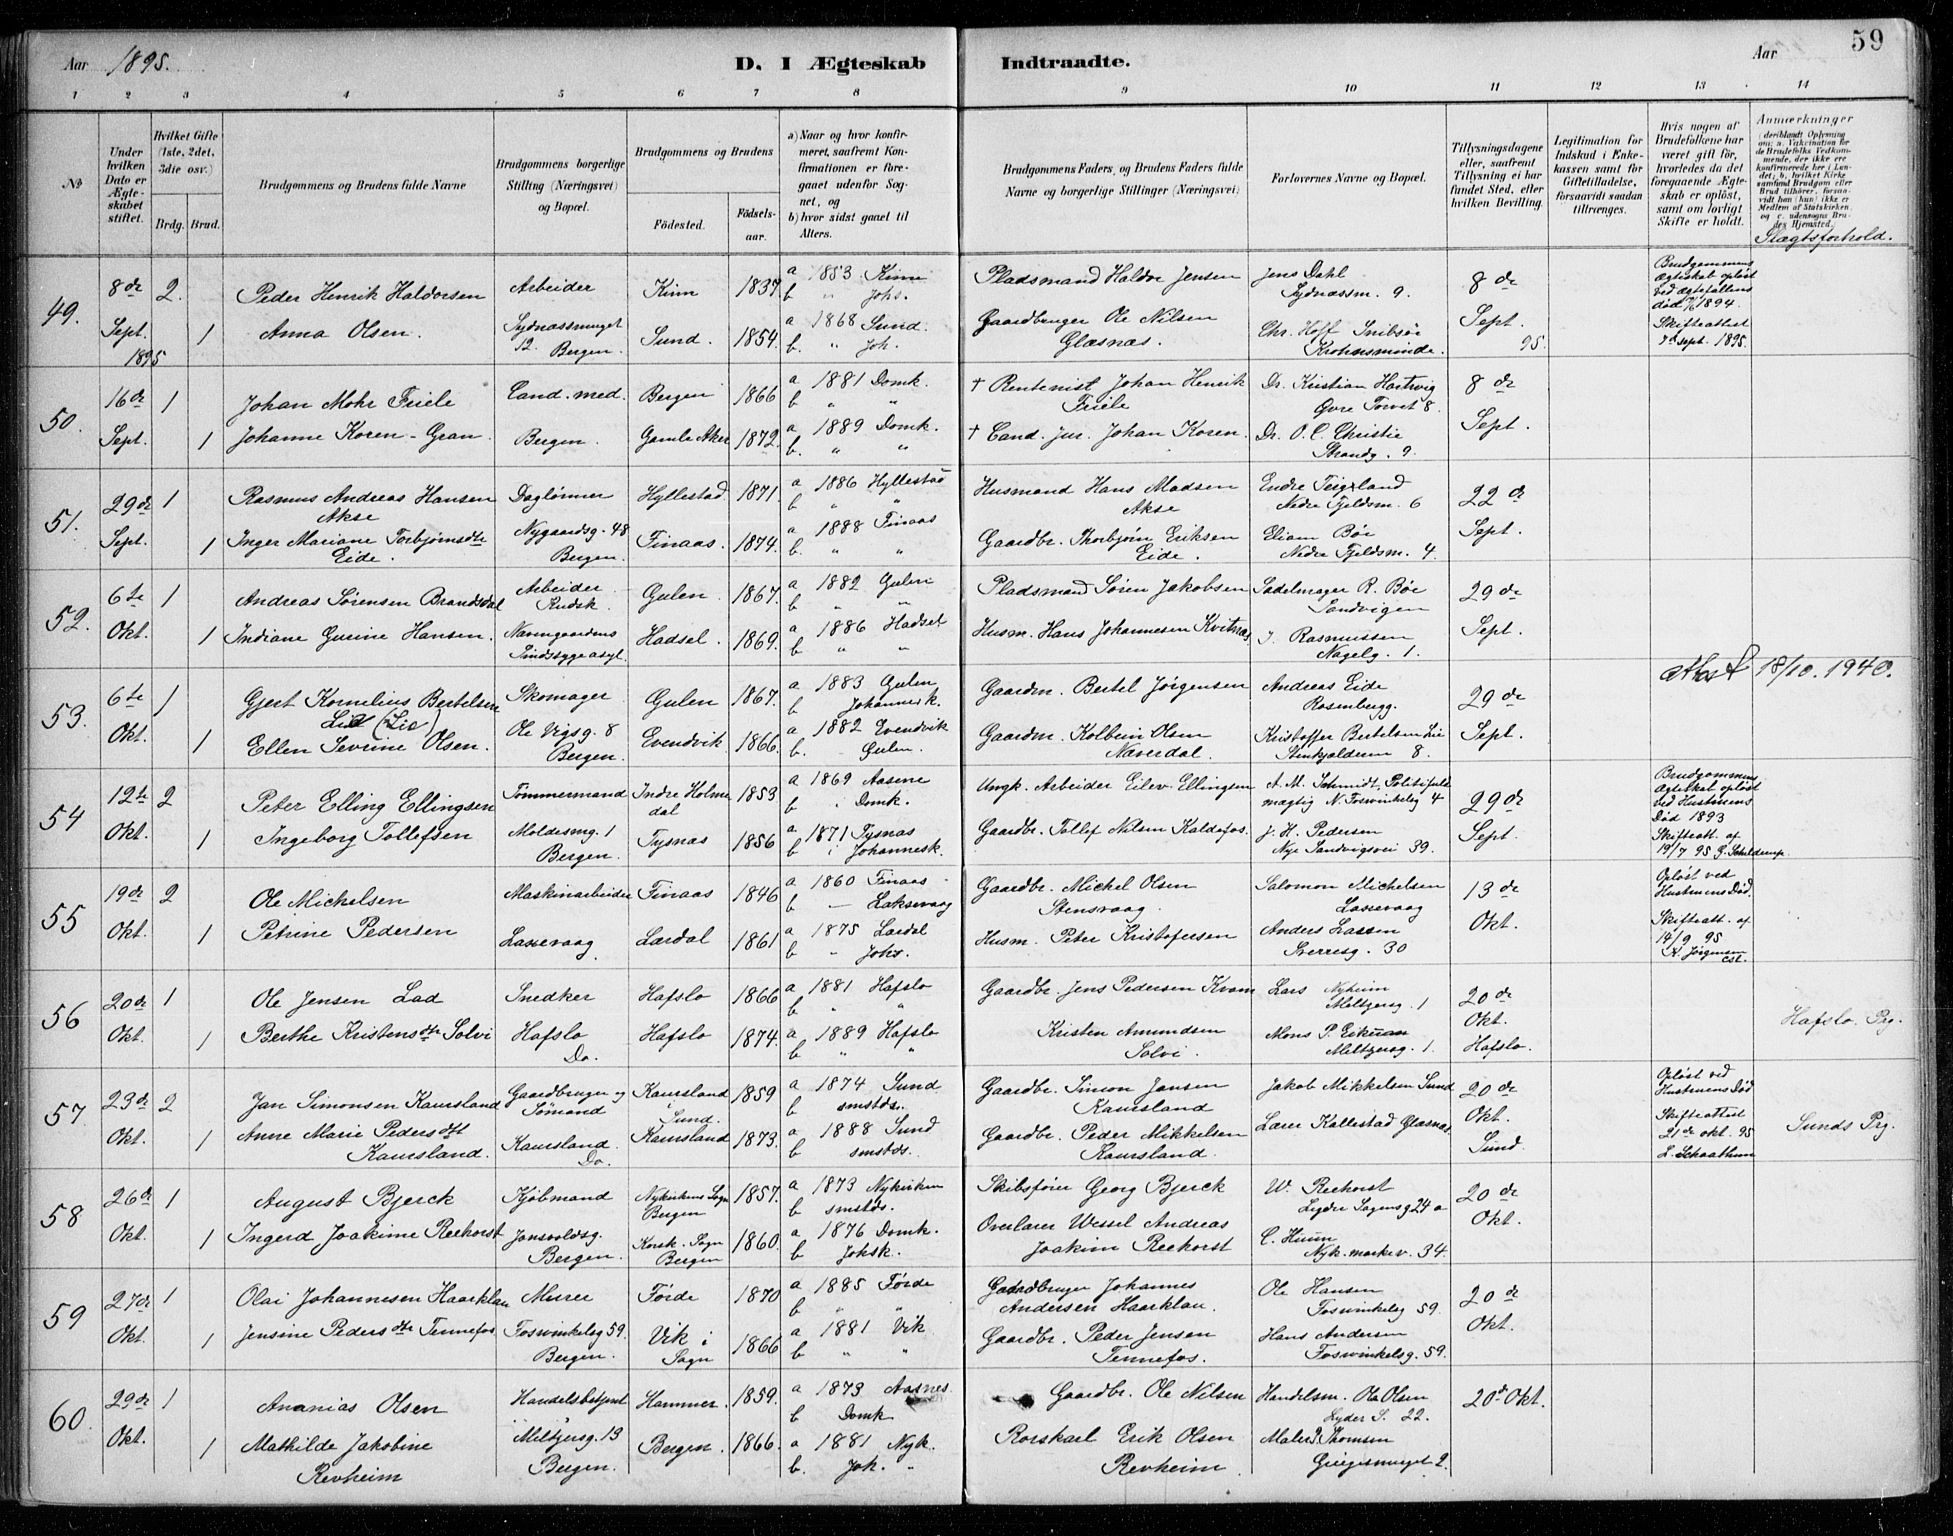 Aar 1895.
D. I Ægteskab Indtraadte.
Aar
59
1 2 3 4 5 6 7 8 9 10 11 12 13 14
No
Under hvilken Dato er Ægteskabet stiftet.
Hvilket Gifte (1ste, 2det, 3die osv.)
Brdg. Brud.
Brudgommens og Brudens fulde Navne
Brudgommens borgerlige Stilling (Næringsvei) og Bopæl.
Brudgommens og Brudens
Fødested. Fødselsaar.
a) Naar og hvor konfirmeret, saafremt Konfirmationen er foregaaet udenfor Sognet, og
b) hvor sidst gaaet til Alters.
Brudgommens Faders, og Brudens Faders fulde Navne og borgerlige Stillinger (Næringsvei)
Forlovernes Navne og Bopæl.
Tillysningsdagene eller, saafremt Tillysning ei har fundet Sted, efter hvilken Bevilling.
Legitimation for Indskud i Enkekassen samt for Giftetilladelse, forsaavidt saadan tiltrænges.
Hvis nogen af Brudefolkene har været gift, hvorledes da det foregaaende Ægteskab er opløst, samt om lovligt Skifte er holdt.
Anmærkninger (deriblandt Oplysning om: a. Vakcination for de Brudefolks Vedkommende, der ikke ere konfirmerede her i Landet; b. hvilket Kirkesamfund Brudgom eller Brud tilhører, forsaavidt han (hun) ikke er Medlem af Statskirken, og c. udensogns Brudes Hjemsted.
Slægtsforhold.
49. 8de Sept. 1895 2 Peder Henrik Haldorsen Arbeider Kinn 1837 a 1853 Kinn b " Johs. Pladsmand Haldor Jensen Jens Dahl Sydnæssm. 9. 8de Sept. 95. Brudgommens Ægteskab opløst ved ægtefællens død 1894. Skifteattest sept. 1895.
1 Anna Olsen. Sydnæssmuget 12. Bergen. Sund. 1854. a 1868 Sund. b. " Joh. Gaardbruger Ole Nilsen Glæsnæs. Chr. Hoff Krohnsminde.
50. 16de Sept. 1 Johan Mohr Friele Cand. med. Bergen 1866 a 1881 Domk. b " " † Rentenist Johan Henrik Friele Dr. Kristian Hartwig Øvre Torvet 8. 8de Sept.
1 Johanne Koren-Gran. Bergen. Gamle Aker 1872. a 1889 Domk. b. " " † Cand. jur. Johan Koren. Dr. O. C. Christie Strandg. 9.
51. 29de Sept. 1 Rasmus Andreas Hansen Akse Daglønner Hyllestad 1871 a 1886 Hyllestad b " " Husmand Hans Madsen Akse Endre Teigland Nedre Fjeldsm. 6 22de Sept.
1 Inger Mariane Torbjørnsdtr Eide. Nygaardsg. 48 Bergen. Finaas. 1874. a 1888 Finaas b. " " Gaardbr. Thorbjørn Eriksen Eide. Eliam Bøe Nedre Fjeldsm. 4.
52. 6te Okt. 1 Andreas Sørensen Brandsdal Arbeider Kudsk. Gulen. 1867. a 1882 Gulen b " " Pladsmand Søren Jakobsen Sadelmager R. Bøe Sandvigen 29de Sept.
1 Indiane Gurine Hansen. Sindssygeasyl. Hadsel. 1869. a 1886 Hadsel b " " Husm. Hans Johannesen Kvitnæs J. Rasmussen Nagelg. 1.
53. 6te Okt. 1 Gjert Kornelius Bertelsen Lid (Lie) Skomager Gulen 1867. a 1883 Gulen b Johannesk. Gaardm. Bertel Jørgensen Andreas Eide Rosenbergg. 29de Sept. Attest 18/10. 1940.
1 Ellen Sevrine Olsen. Ole Vigsg. 8 Bergen. Evendvik 1866. a 1882 Evendvik b. Gulen. Gaardm. Kolbein Olsen Næverdal Kristoffer Bertelsen Lie Stenkjælderen 8.
54 12te Okt. 2 Peter Elling Ellingsen Tømmermand Indre Holmedal 1853 a 1869 Aasene b i Domk. Ungk. Arbeider Eilev Ellingsen A. M. Schmidt, Politifuldmægtig N. Fosvinkelsg 4 29de Sept. Brudgommens Ægteskab opløst ved Hustruens Død 1893 Skifteatt. af 19/7 95
1 Ingeborg Tollefsen Moldesmg. 1 Bergen. Tysnæs 1856 a 1871 Tysnæs b i Johannesk. Gaardbr. Tollef Nilsen Kaldefos. J. H. Pedersen Nye Sandvigsvei 39.
55 19de Okt. 2 Ole Michelsen Maskinarbeider Finaas 1846 a 1860 Finaas b — Laksevaag Gaardbr. Michel Olsen Stensvaag. Salomon Michelsen Laxevaag 13de Okt. Opløst ved Hustruens Død. Skifteatt. af 14/9 95 Jørgensen
1 Petrine Pedersen Laxevaag. Lærdal 1861 a 1875 Lærdal b " Johs. Husm. Peter Kristofersen Anders Lassen Sverresg. 30
56 20de Okt. 1 Ole Jensen Lad Snedker Hafslo 1866 a 1881 Hafslo b " " Gaardbr. Jens Pedersen Kvam Lars Nyheim Meltzersg. 1 20de Okt. Hafslo. Hafslo. Prg.
1 Berthe Kristensdtr Solvi Hafslo Do. Hafslo 1874. a 1889 Hafslo b " " Kristen Amundsen Solvi Mons P. Eikum Meltzersg. 1.
57 23de Okt. 2 Jan Simonsen Kausland Gaardbruger og Sømand Kausland i Sund. 1859 a 1874 Sund b smstds. Gaardbr. Simon Jansen Kausland Jakob Mikkelsen Sund 20de Okt. Sund. Opløst ved Hustruens Død Skifteattest 21de okt. 95 Sunds Prg.
1 Anne Marie Pedersdtr Kausland. Kausland. Do. Kausland 1873. a 1888 Sund b smstds. Gaardbr. Peder Mikkelsen Kausland. Lærer Kallestad Glæsnæs.
58 26de Okt. 1 August Bjerck Kjøbmand Nykirkens Sogn Bergen 1857. a 1873 Nykirken b smstds. Skibsfører Georg Bjerck W. Reehorst Lyder Sagensg 24 a 20de Okt.
1 Ingerd Joakime Reehorst Jonsvoldsg. Bergen. Korsk. Sogn Bergen 1860. a 1876 Domk. b Johsk. Overlærer Wessel Andreas Joakim Reehorst C. Huun Nyk. markev. 34.
59 27de Okt. 1 Olai Johannesen Haarklau Murer Førde 1870 a 1885 Førde b " " Gaardbruger Johannes Andersen Haarklau. Ole Hansen Fosvinkelsg 59. 20de Okt.
1 Jensine Pedersdtr Tennefos. Fosvinkelsg 59. Bergen. Vik i Sogn 1866 a 1881 Vik b " " Gaardbr. Peder Jensen Tennefos. Hans Andersen Fosvinkelsg. 59.
60. 29de Okt. 1 Ananias Olsen Handelsbetjent Hammer. 1859. a 1873 Aasnes. b Domk Gaardbr. Ole Nilsen Handelsm. Ola Olsen Lyder S. 22. 20de Okt.
1 Mathilde Jakobine Revheim Meltzersg. 13 Bergen. Bergen. 1866. a 1881 Nyk. b. Joh. " Rorskarl Erik Olsen Revheim. Maler J. Thomsen Griegsmuget 2.